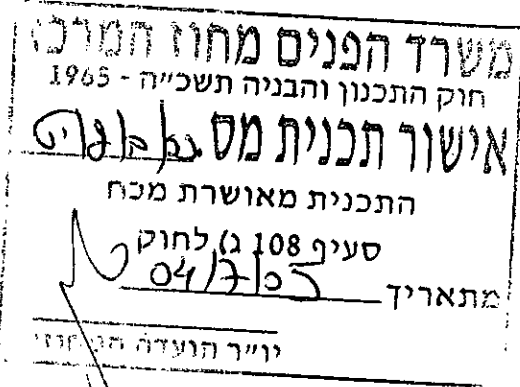 משרד הפנים מחוז המרכז
חוק התכנון והבניה תשכ״ה - 1965
אישור תכנית מס
התכנית מאושרת מכח
סעיף 108 ג) לחוק
מתאריך 04/7/05
יו״ר הועדה המחוזית